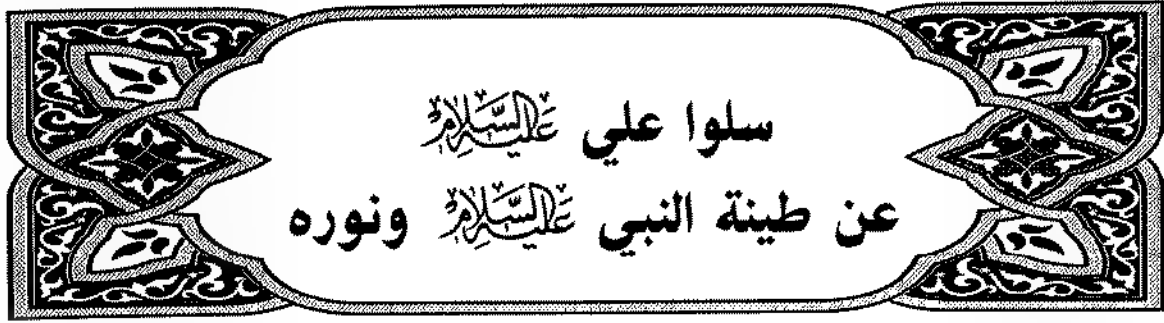 سلوا علي عليه السلام
عن طينة النبي عليه السلام ونوره